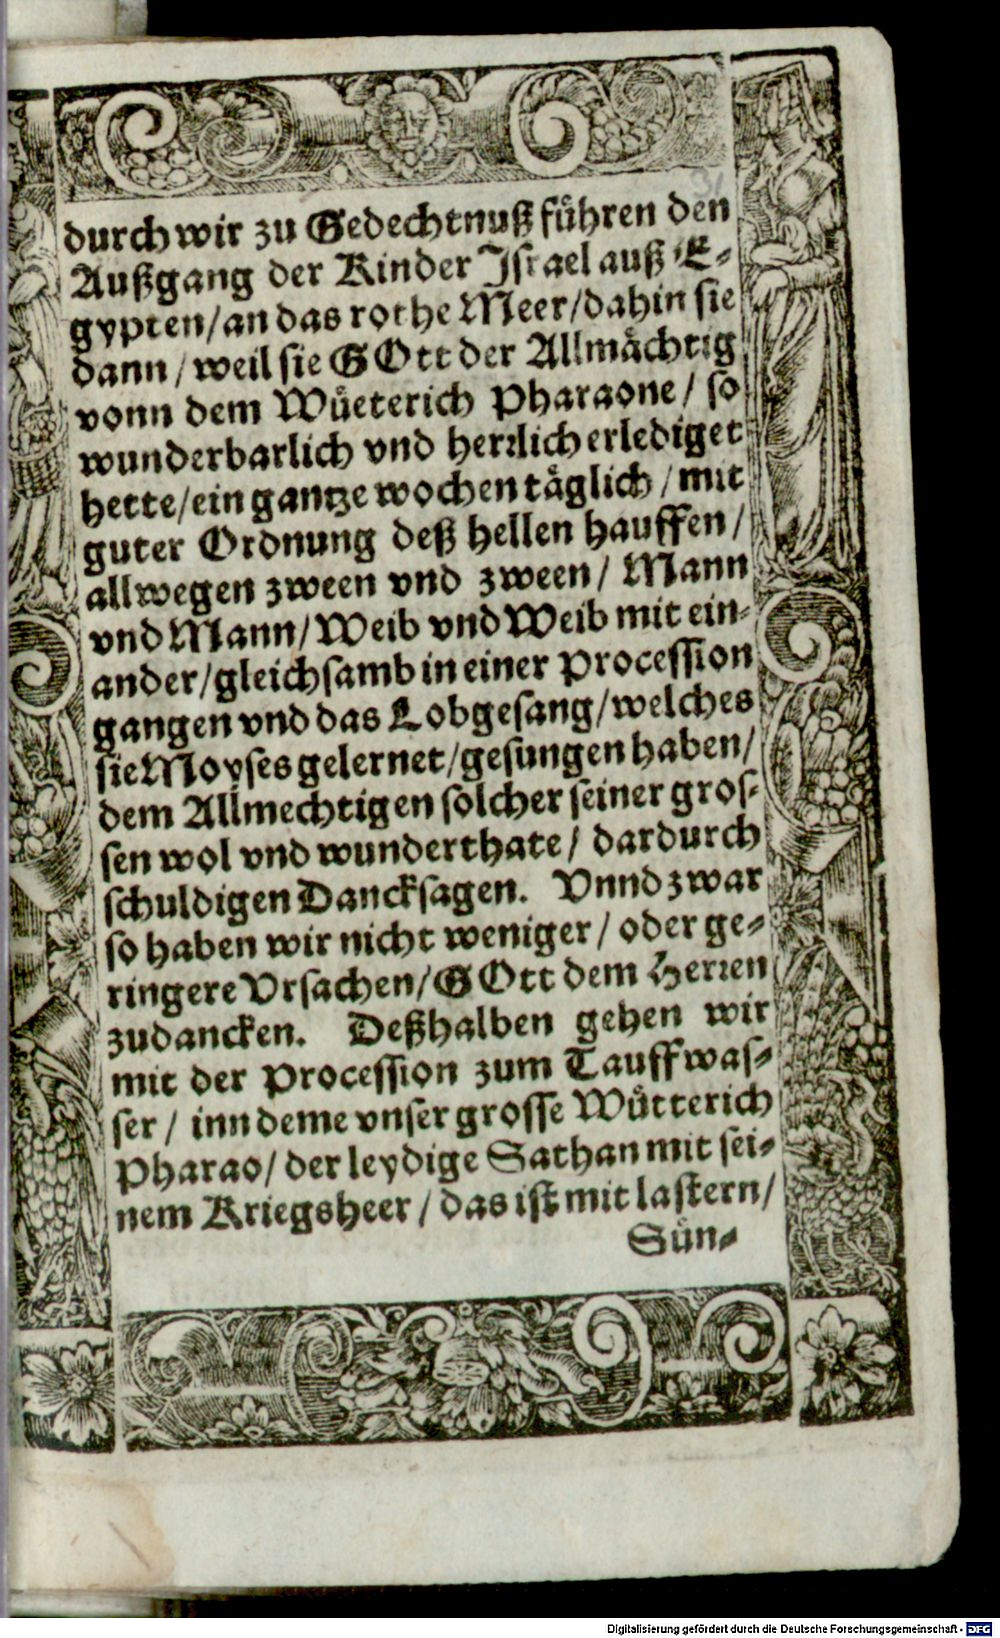 31
durch wir zu Gedechtnuß fuͤhren den
Außgang der Kinder Israel auß E-
gypten/an das rothe Meer/dahin sie
dann/weil sie GOtt der Allmaͤchtig
vonn dem Wuͤeterich Pharaone/so
wunderbarlich vnd herrlich erlediget
hette/ein gantze wochen taͤglich/mit
guter Ordnung deß hellen hauffen/
allwegen zween vnd zween/Mann
vnd Mann/Weib vnd Weib mit ein-
ander/gleichsamb in einer Procession
gangen vnd das Lobgesang/welches
sie Moyses gelernet/gesungen haben/
dem Allmechtigen solcher seiner gros-
sen wol vnd wunderthate/dardurch
schuldigen Dancksagen. Vnnd zwar
so haben wir nicht weniger/oder ge-
ringere Vrsachen/GOtt dem Herren
zudancken. Deßhalben gehen wir
mit der Procession zum Tauffwas-
ser/inn deme vnser grosse Wuͤtterich
Pharao/der leydige Sathan mit sei-
nem Kriegsheer/das ist mit lastern/
Suͤn-
Digitalisierung gefördert durch die Deutsche Forschungsgemeinschaft - DFG